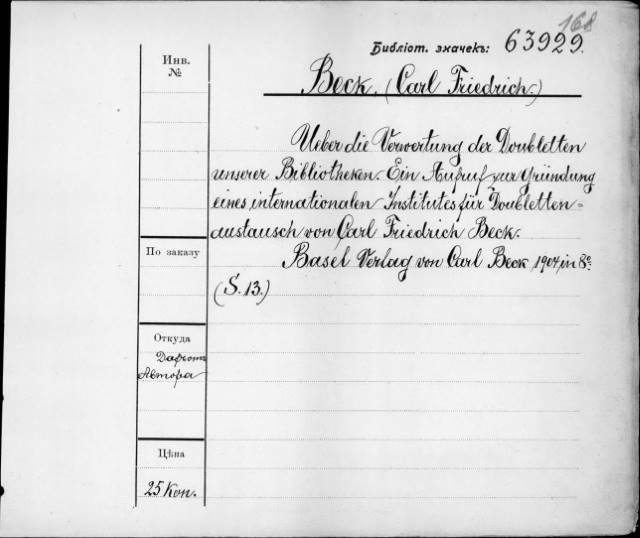 168
Библіот. значекъ: 63929.
Инв.
№
Beck. (Carl Friedrich.)
Ueber die Verwertung der Doubletten
unserer Bibliotheken. Ein Aufruf zur Gründung
eines internationalen Institutes für Doubletten-
austausch von Carl Friedrich Beck.
Basel Verlag von Carl Beck 1904 in 8º.
(S. 13.)
По заказу
Откуда
Даръ отъ
Автора
Цѣна
25 Коп.